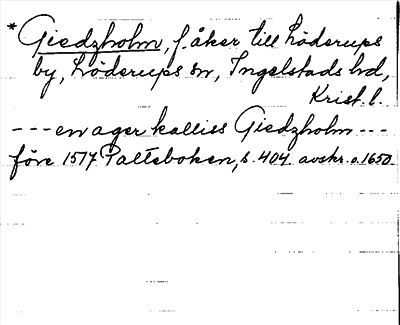 * Giedzholm, f. åker till Löderups
by, Löderups sn, Ingelstads hd,
Krist. l.
--- en ager kalliss Giedzholm ---
före 1517 Palteboken, s. 404 avskr. o. 1650.